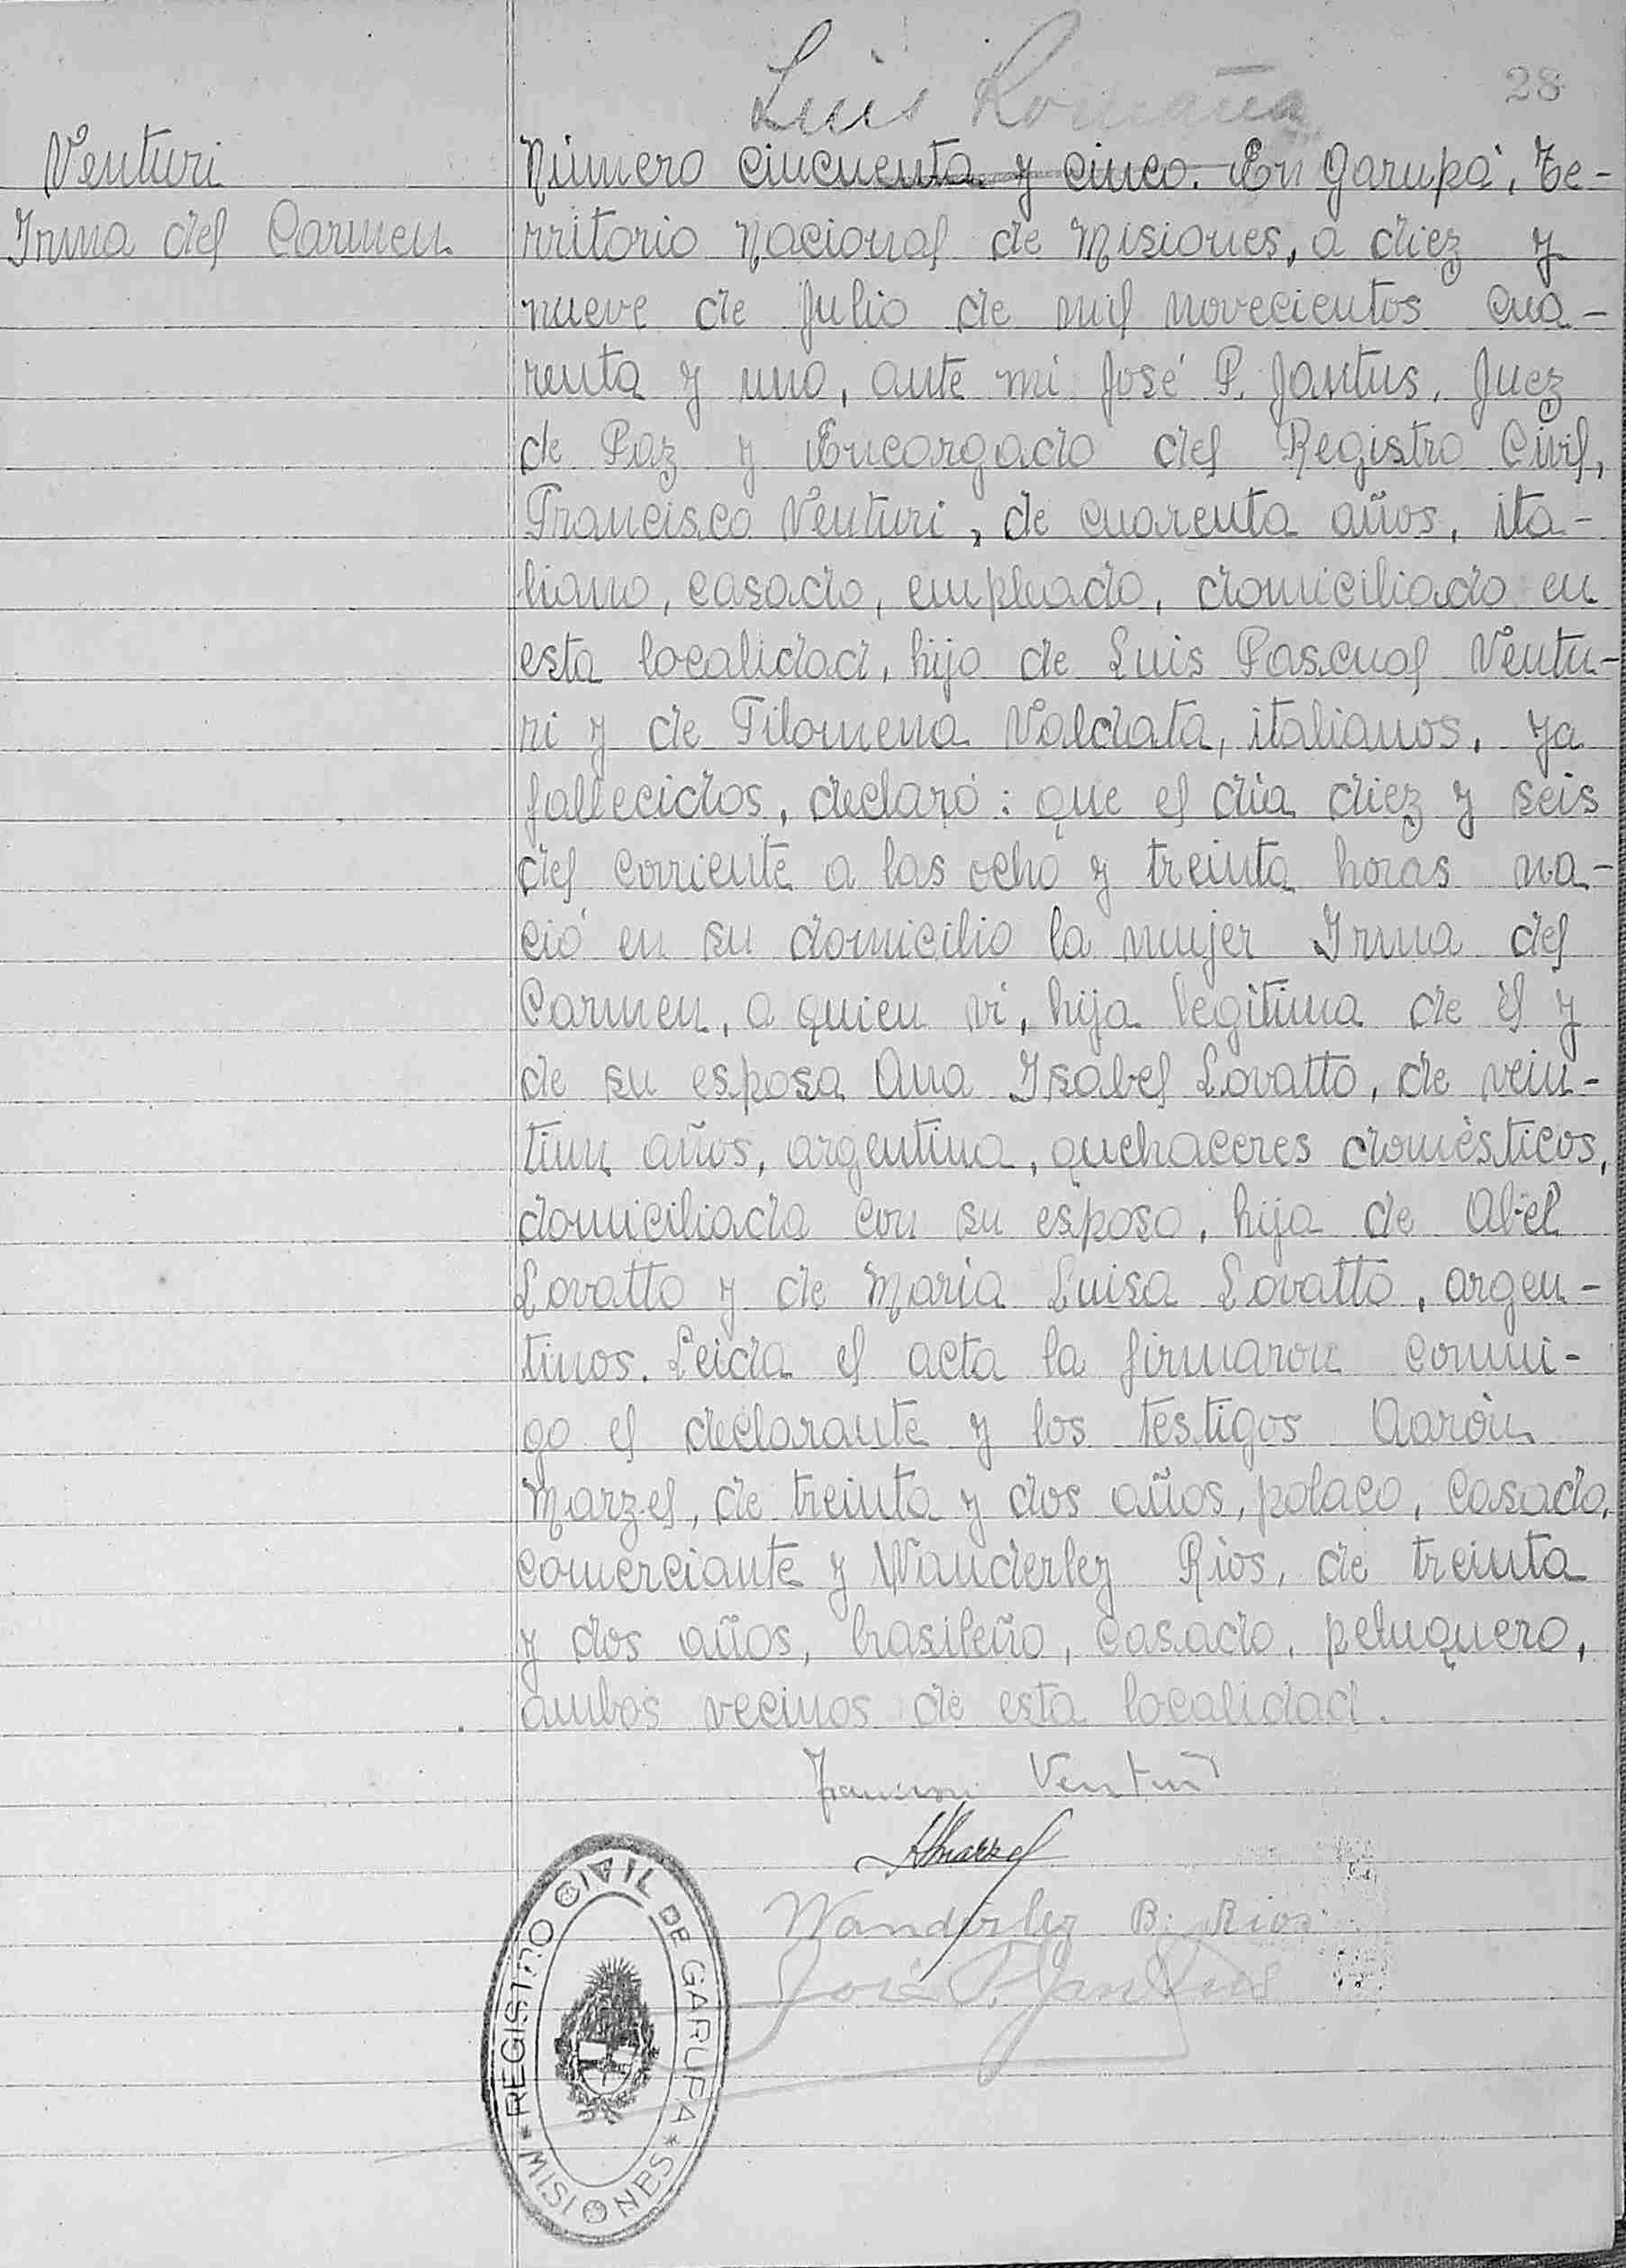 Luis Romaña
28
Venturi
Irma del Carmen
Número cincuenta y cinco. En Garupá, Te-
rritorio Nacional de Misiones, a diez y
nueve de Julio de mil novecientos cua-
renta y uno, ante mi José P. Jantus, Juez
de Paz y Encargado del Registro Civil,
Francisco Venturi, de cuarenta años, ita-
liano, casado, empleado, domiciliado en
esta localidad, hijo de Luis Pascual Ventu-
ri y de Filomena Valdata, italianos, ya
fallecidos, declaró: que el día diez y seis
del corriente a las ocho y treinta horas na-
ció en su domicilio la mujer Irma del
Carmen, a quien ví, hija legitima de él y
de su esposa Ana Isabel Lovatto, de vein-
tiun años, argentina, quehaceres domésticos,
domiciliada con su esposo, hija de Abel
Lovatto y de Maria Luisa Lovatto, argen-
tinos. Leida el acta la firmaron conmi-
go el declarante y los testigos Aarón
Marzel, de treinta y dos años, polaco, casado,
comerciante y Wanderley Rios, de treinta
y dos años, brasileño, casado, peluquero,
ambos vecinos de esta localidad.
Venturi
AMarzel
Wanderley B. Rios
José P. Jantus
REGISTRO CIVIL DE GARUPA
* MISIONES *